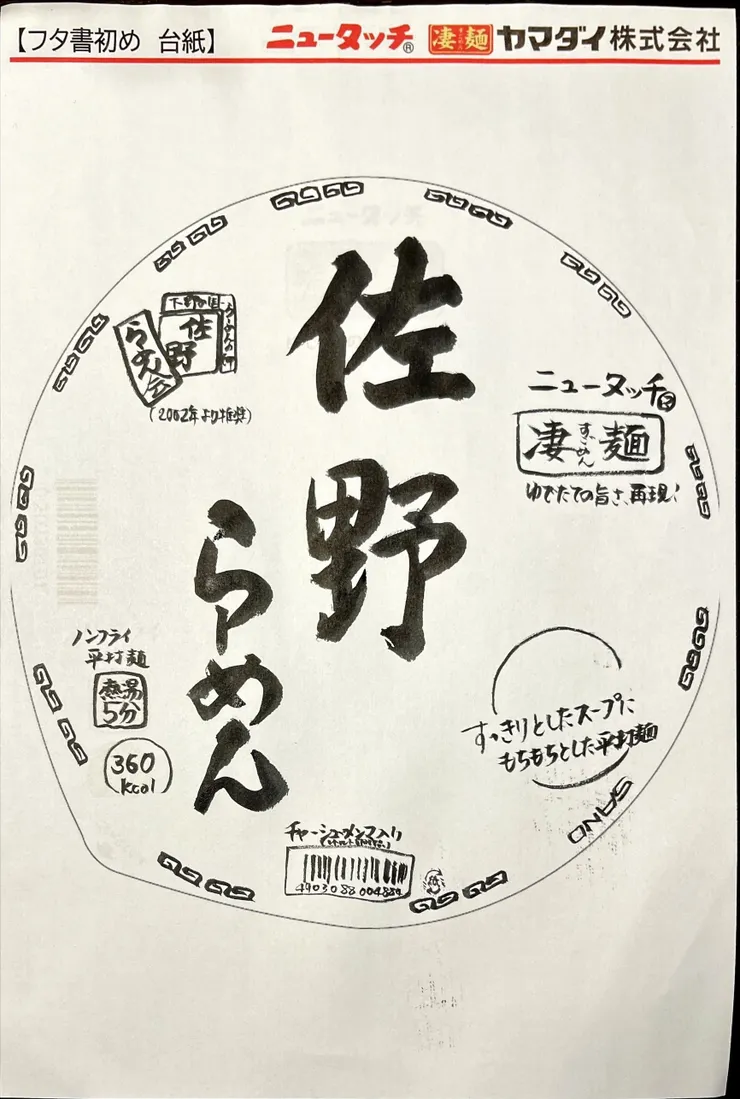 【フタ書初め 台紙】 ニュータッチ® 凄麺 ヤマダイ株式会社
佐野
らーめん
ニュータッチ®
凄麺
すごめん
ゆでたての旨さ、再現!
佐野
らーめん会
(2002年より推奨)
ノンフライ
平打麺
熱湯
5分
360
kcal
すっきりとしたスープに
もちもちとした平打麺
SANO
チャーシュー・メンマ入り
4903088004884